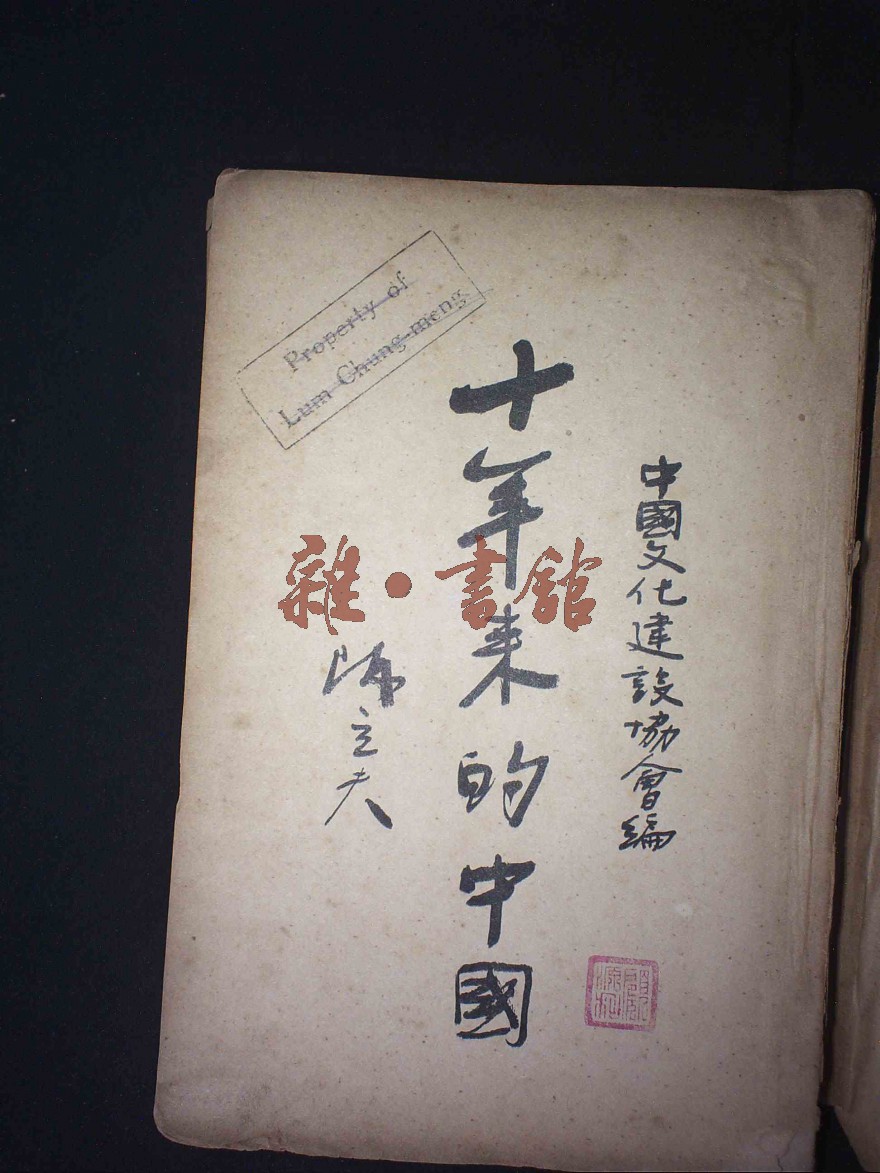 中國文化建設協會編
十年来的中國
陳立夫
Property of
Lum Chung-meng
雜·書館